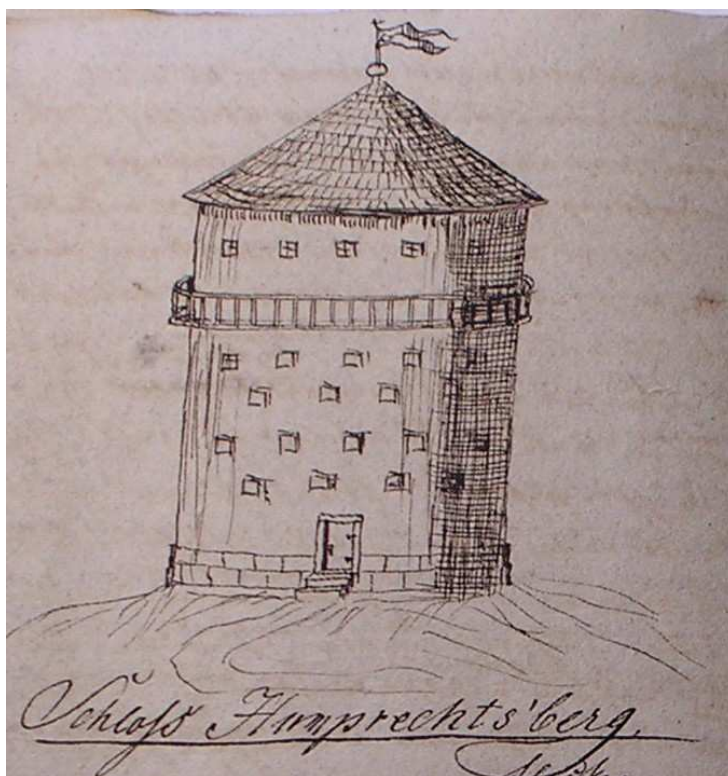 Schloſs Humprechts'berg.